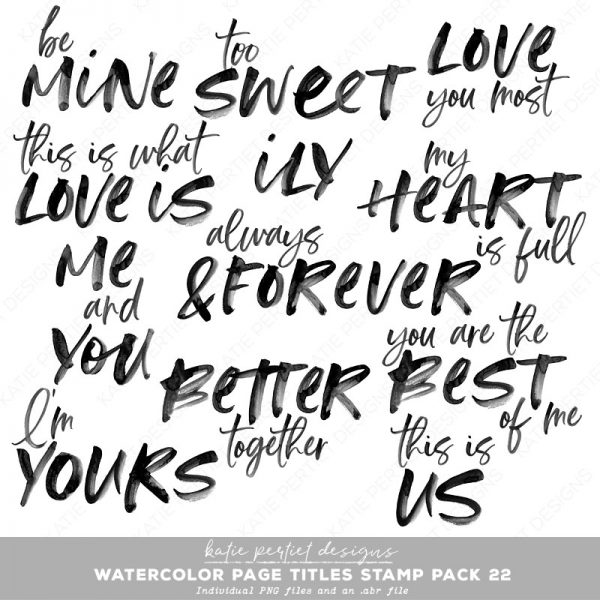 be
MINE
too
SWEET
LOVE
you most
this is what
LOVE iS
iLY
my
HEART
is full
Me
and
YOU
always
&FOREVER
you are the
BEST
of me
I'm
YOURS
BETTER
together
this is
US
katie pertiet designs
WATERCOLOR PAGE TITLES STAMP PACK 22
Individual PNG files and an .abr file